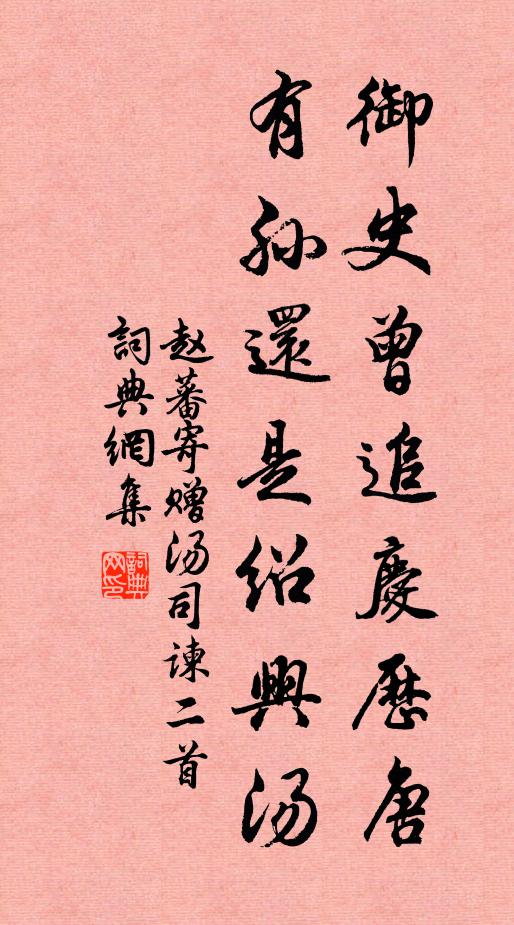 御史曾追慶歷唐
有孙還是紹興汤
赵蕃寄赠汤司谏二首
詞典網集
詞典网印